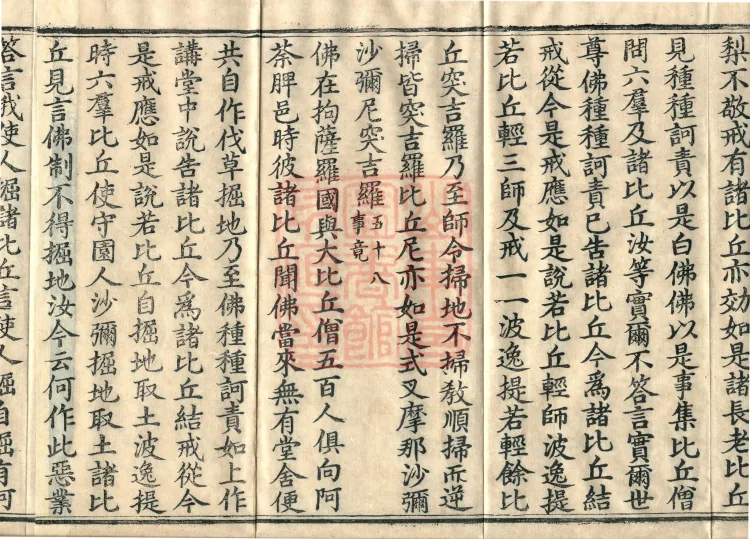 梨不敬戒有諸比丘亦効如是諸長老比丘
見種種訶責以是白佛佛以是事集比丘僧
問六羣及諸比丘汝等實爾不答言實爾世
尊佛種種訶責已告諸比丘今爲諸比丘結
戒從今是戒應如是說若比丘輕師波逸提
若比丘輕三師及戒一一波逸提若輕餘比
丘突吉羅乃至師令掃地不掃教順掃而逆
掃皆突吉羅比丘尼亦如是式叉摩那沙彌
沙彌尼突吉羅五十八事竟
佛在拘薩羅國與大比丘僧五百人俱向阿
荼脾邑時彼諸比丘聞佛當來無有堂舍便
共自作伐草掘地乃至佛種種訶責如上作
講堂中說告諸比丘今爲諸比丘結戒從今
是戒應如是說若比丘自掘地取土波逸提
時六羣比丘使守園人沙彌掘地取土諸比
丘見言佛制不得掘地汝今云何作此惡業
答言我使人掘諸比丘言使人掘自掘有何